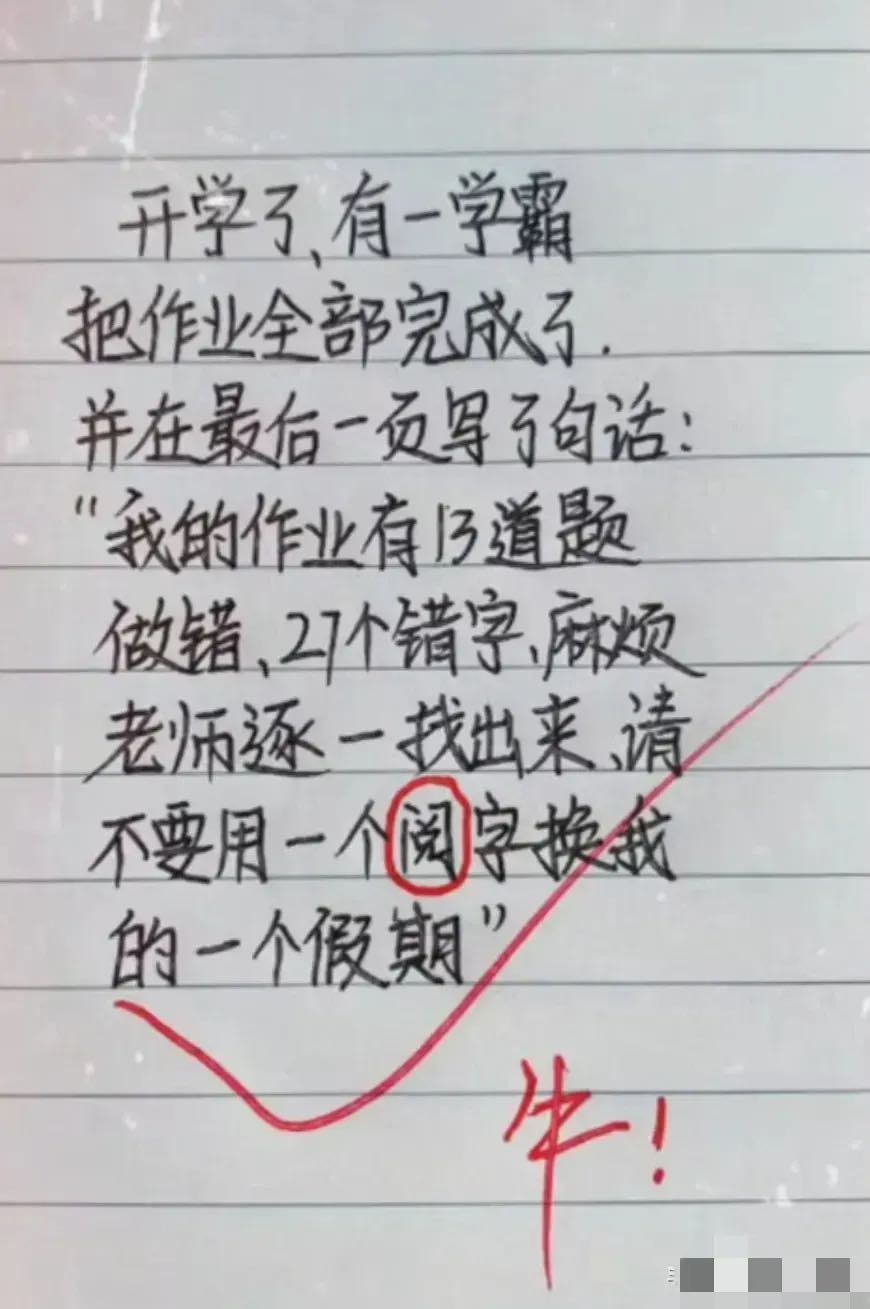 开学了、有一学霸
把作业全部完成了.
并在最后一页写了句话：
“我的作业有13道题
做错、27个错字、麻烦
老师逐一找出来、请
不要用一个阅字换我
的一个假期”
牛！